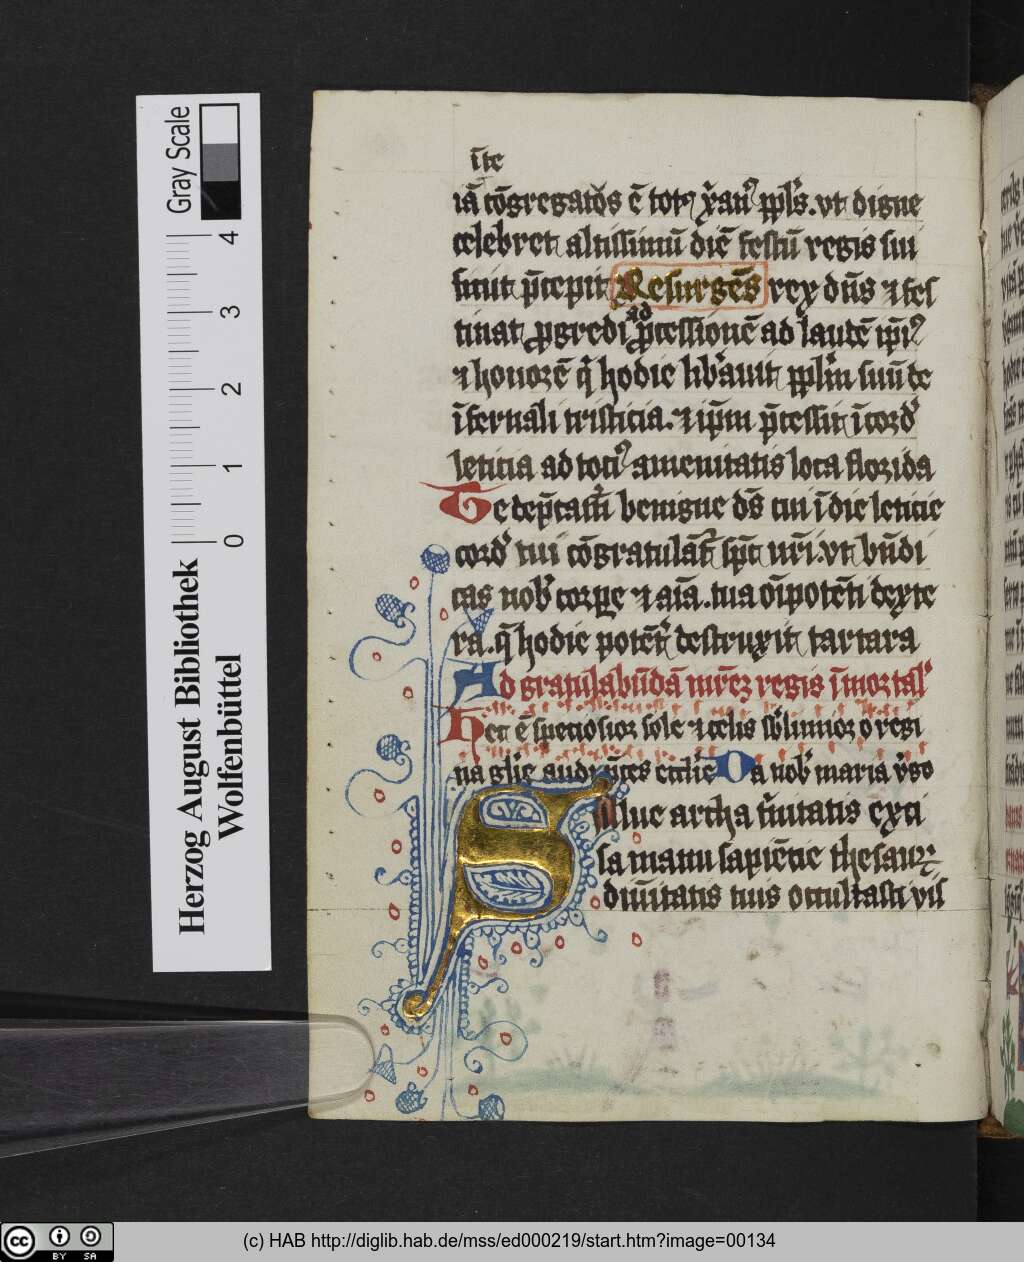 Gray Scale
4
3
2
1
0
Herzog August Bibliothek
Wolfenbüttel
īte
iā cōgregatꝰs ē totꝰ xp̄anꝰ ppl's. vt digne
celebret altissimū diē festū regis sui
sicut p̄cepit Resurgēs rex dn̄s ⁊ fes
tinat ꝓgredi ad p̄cessionē ad laudē ip̄iꝰ
⁊ honorē q̄ hodie lib'auit ppl'm suū de
īfernali tristicia. ⁊ ip̄m p̄cessit ī cord'
leticia ad tociꝰ amenitatis loca florida
Te dep̄cam̄ benigne ds̄ cui ī die leticie
cord' tui cōgratulāt sp̄c vr̄i. vt bn̄di
cas nob' corpe ⁊ aīa. tua oīpotēti dexte
ra. q̄ hodie potēt' destruxit tartara
Ad gratulabūdā mr̄eꝫ regis īmortal'
Hec ē speciosior sole ⁊ celis sb'limior o regi
na gl'ie audi p̄ces eccl'ie Da nob' maria v'go
Alue archa t'nitatis exci
sa manu sapiētie thesaurꝰ
diuītatis tuis occultasti vis
(c) HAB http://diglib.hab.de/mss/ed000219/start.htm?image=00134
cc BY SA